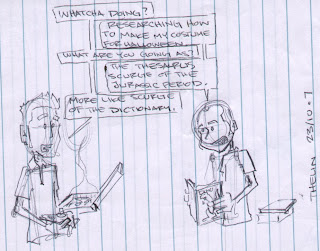 WHATCHA DOING?
RESEARCHING HOW
TO MAKE MY COSTUME
FOR HALLOWEEN.
WHAT ARE YOU GOING AS?
THE THESAURUS
OF THE
JURASIC PERIOD.
MORE LIKE
OF THE DICTIONARY.
THELIN 23/10·7